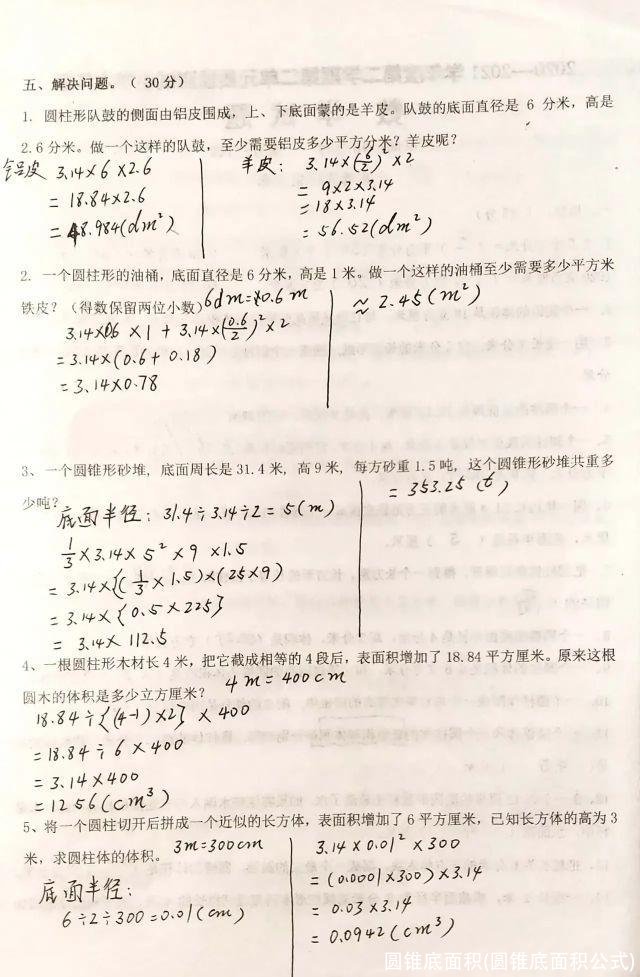 五、解决问题。（ 30分）
1. 圆柱形队鼓的侧面由铝皮围成，上、下底面蒙的是羊皮。队鼓的底面直径是 6 分米，高是
2.6 分米。做一个这样的队鼓，至少需要铝皮多少平方分米？羊皮呢？
铝皮 3.14×6×2.6
= 18.84×2.6
= 48.984(dm²)
羊皮： 3.14×(6/2)²×2
= 9×2×3.14
= 18×3.14
= 56.52(dm²)
2. 一个圆柱形的油桶，底面直径是 6 分米，高是 1 米。做一个这样的油桶至少需要多少平方米
铁皮？（得数保留两位小数） 6dm=0.6m
3.14×0.6×1+3.14×(0.6/2)²×2
=3.14×(0.6+0.18)
=3.14×0.78
≈2.45(m²)
3、一个圆锥形砂堆，底面周长是 31.4 米，高 9 米，每方砂重 1.5 吨，这个圆锥形砂堆共重多
少吨？
底面半径：31.4÷3.14÷2=5(m)
1/3×3.14×5²×9×1.5
= 3.14×{(1/3×1.5)×(25×9)
= 3.14×{0.5×225}
= 3.14×112.5
= 353.25(t)
4、一根圆柱形木材长 4 米，把它截成相等的 4 段后，表面积增加了 18.84 平方厘米。原来这根
圆木的体积是多少立方厘米？ 4m=400cm
18.84÷{(4-1)×2}×400
=18.84÷6×400
=3.14×400
=1256(cm³)
5、将一个圆柱切开后拼成一个近似的长方体，表面积增加了 6 平方厘米，已知长方体的高为 3
米，求圆柱体的体积。 3m=300cm
底面半径：
6÷2÷300=0.01(cm)
3.14×0.01²×300
=(0.0001×300)×3.14
= 0.03×3.14
= 0.0942(cm³)
圆锥底面积(圆锥底面积公式)